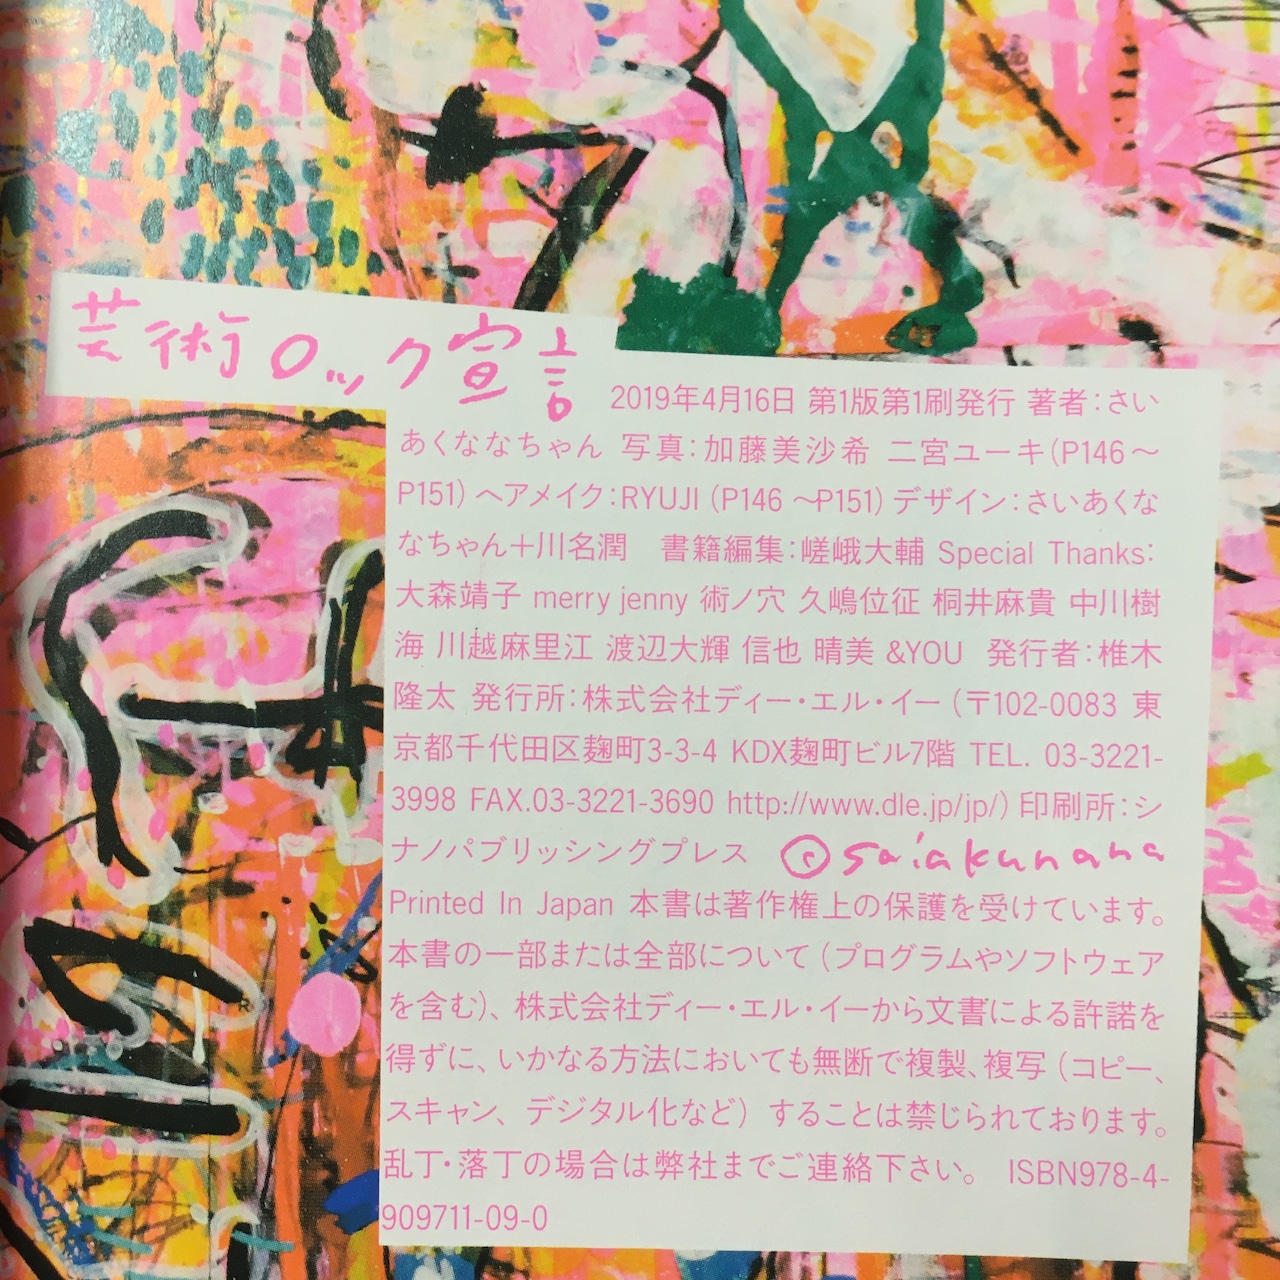 芸術ロック宣言
2019年4月16日 第1版第1刷発行 著者:さい
あくななちゃん 写真:加藤美沙希 二宮ユーキ(P146〜
P151) ヘアメイク:RYUJI (P146 〜P151) デザイン:さいあくな
なちゃん+川名潤 書籍編集:嵯峨大輔 Special Thanks:
大森靖子 merry jenny 術ノ穴 久嶋位征 桐井麻貴 中川樹
海 川越麻里江 渡辺大輝 信也 晴美 &YOU 発行者:椎木
隆太 発行所:株式会社ディー・エル・イー (〒102-0083 東
京都千代田区麹町3-3-4 KDX麹町ビル7階 TEL. 03-3221-
3998 FAX.03-3221-3690 http://www.dle.jp/jp/) 印刷所:シ
ナノパブリッシングプレス ©saiakunana
Printed In Japan 本書は著作権上の保護を受けています。
本書の一部または全部について (プログラムやソフトウェア
を含む)、株式会社ディー・エル・イーから文書による許諾を
得ずに、いかなる方法においても無断で複製、複写 (コピー、
スキャン、デジタル化など) することは禁じられております。
乱丁・落丁の場合は弊社までご連絡下さい。 ISBN978-4-
909711-09-0